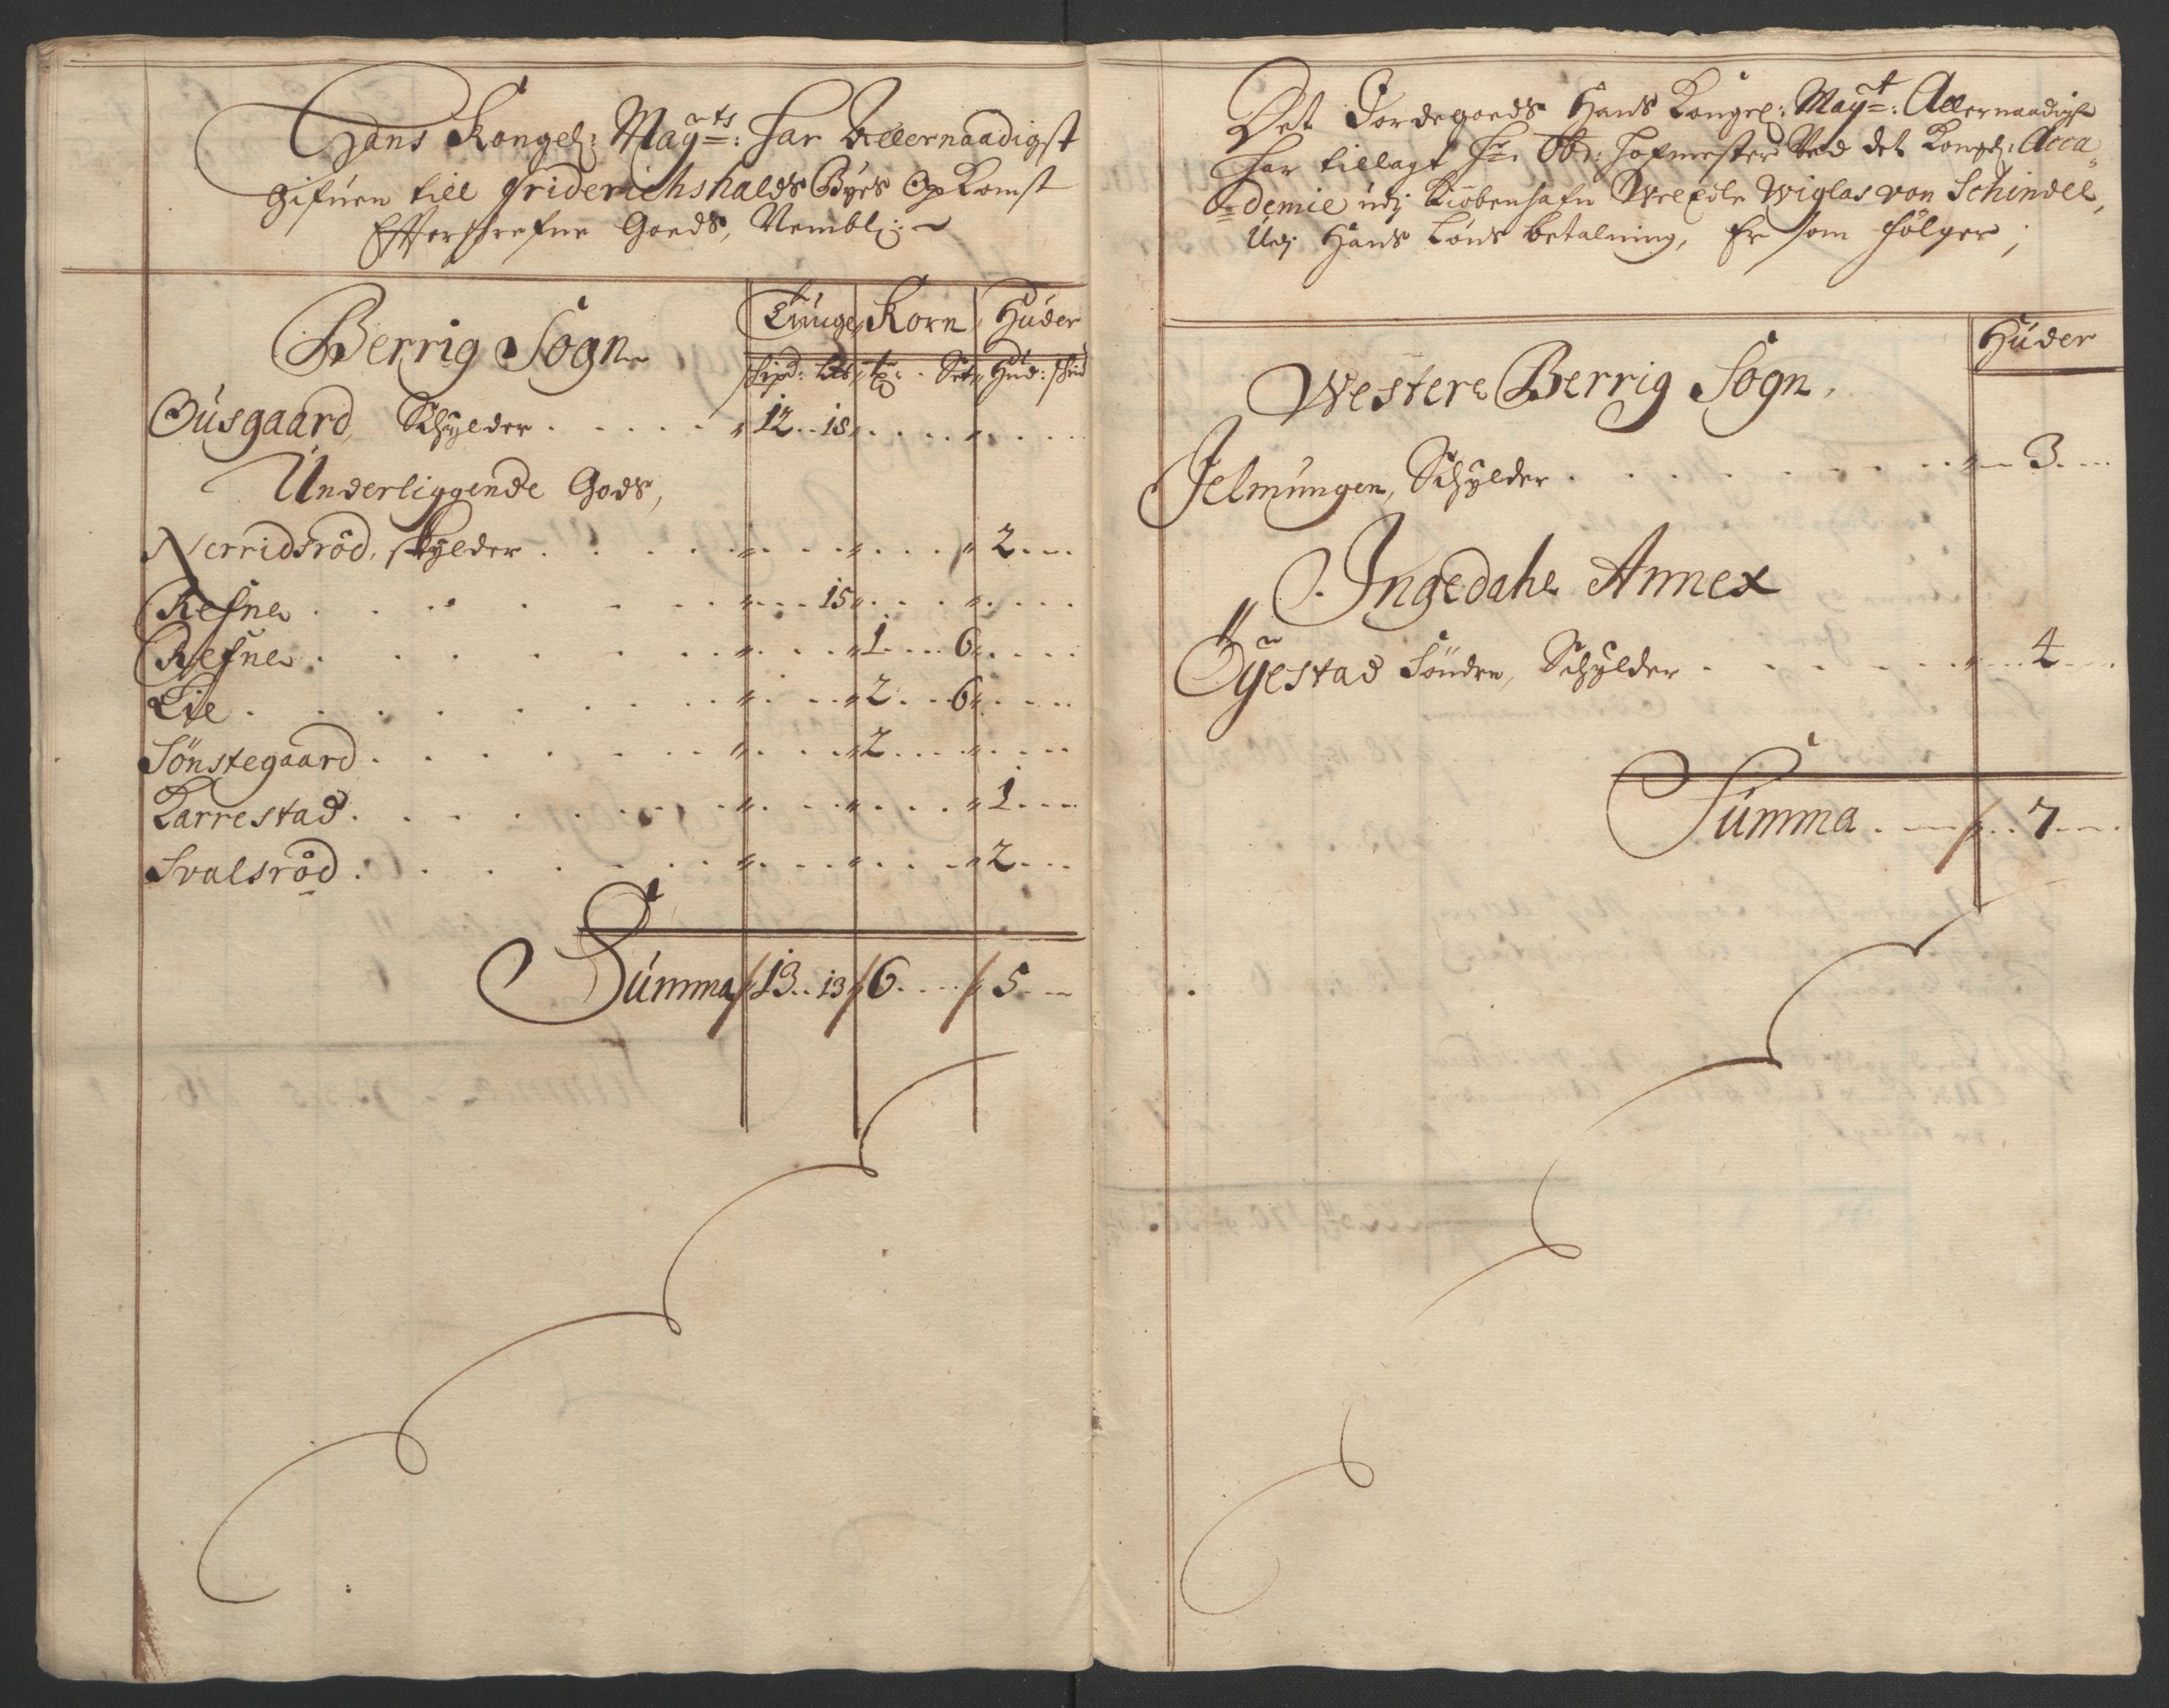 Hans Kongel: Mayts: har Allernaadigst
gifuen till Friderichshalds Byes Op Komst
Effterschrefne Goeds, Nembl:
Berrig Sogn
Tunge Korn Huder
schpd: Lb tr: Set Hud: schind
Gusgaard, Schylder . . . . 12 . . 18
Underliggende Gods,
Nerridsröd, skylder . . . . 2
Refne . . . . 15
Refne . . . . 1 . . 6
Lie . . . . 2 . . 6
Sönstegaard . . . . 2
Karrestad . . . . 1
Svalsröd . . . . 2
Summa 13 . . 13 6 . . . 5
Det Jordegoeds Hans Kongel: Mayt: Allernaadigst
har tillagt Hr. Obr: Hofmester Ved det Kongel: Acca=
=demie udj Kiöbenhafn Wiglas von Schindel,
Udj Hans Löns betalning, Er som fölger;
Huder
Westere Berrig Sogn,
Jelmungen, Schylder . . . . 3
Ingedahl Annex
Öyestad Sönden, Schylder . . . . 4
Summa . . . 7